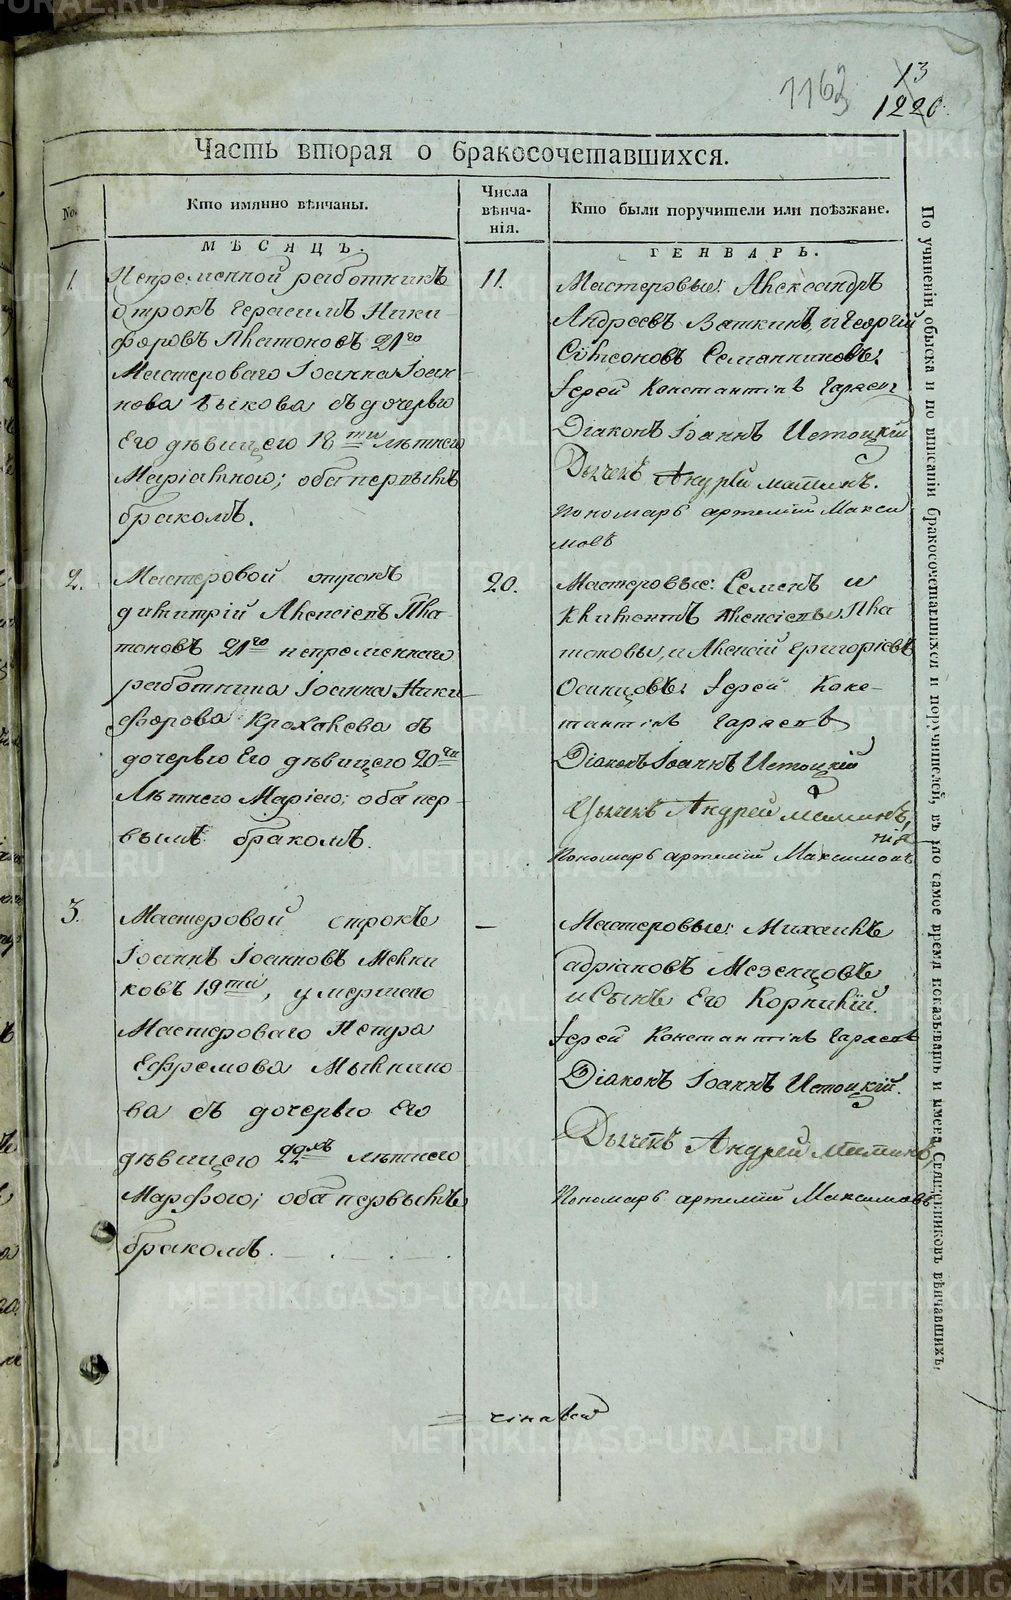 1163
13
1220.
Часть вторая о бракосочетавшихся.
No.
Кто имянно вѣнчаны.
Числа вѣнча-
нія.
Кто были поручители или поѣзжане.
МѢСЯЦЪ.
ГЕНВАРЬ.
1.
Непременной работникъ
отрокъ Герасимъ Ники-
форовъ Платоновъ 21го
Мастероваго Іоанна Іоан
нова Быкова съ дочерью
Его дѣвицею 18ти лѣтнею
Маріамною; оба первымъ
бракомъ.
11.
Мастеровые: Александръ
Андреевъ Вяткинъ, и Георгій
Сѵмеоновъ
Іерей Константинъ
Діаконъ Іоаннъ Истоцкій
Дьячекъ Андрей
Пономарь Артемій Макси
мовъ
2.
Мастеровой отрокъ
Димитрій Алексіевъ Пла
тоновъ 21го непременнаго
работника Іоанна Ники
форова Крохалева съ
дочерью Его дѣвицею 20ти
Лѣтнею Маріею; оба пер-
вымъ бракомъ.
20.
Мастеровые: Семенъ и
Климентъ Алексіевы Пла
тоновы, и Алексій Григоріевъ
Осинцовъ: Іерей Конс-
тантинъ
Діаконъ Іоаннъ Истоцкій
Дьячекъ Андрей
Пономарь Артемій Максимовъ
3.
Мастеровой отрокъ
Іоаннъ Іоанновъ Мельни
ковъ 19ти, умершего
Мастероваго Петра
Ефремова Мыльнико-
ва съ дочерью Его
дѣвицею 22хъ лѣтнею
Марфою; оба первымъ
бракомъ.
—
Мастеровые: Михаилъ
Адріановъ Мезенцовъ
и Сынъ Его Корнилій.
Іерей Константинъ
Діаконъ Іоаннъ Истоцкій.
Дьячекъ Андрей
Пономарь Артемій Максимовъ
По учиненіи обыска и по вписаніи бракосочетавшихся и поручителей, въ то самое время показывать и имена Священниковъ вѣнчавшихъ.
METRIKI.GASO-URAL.RU